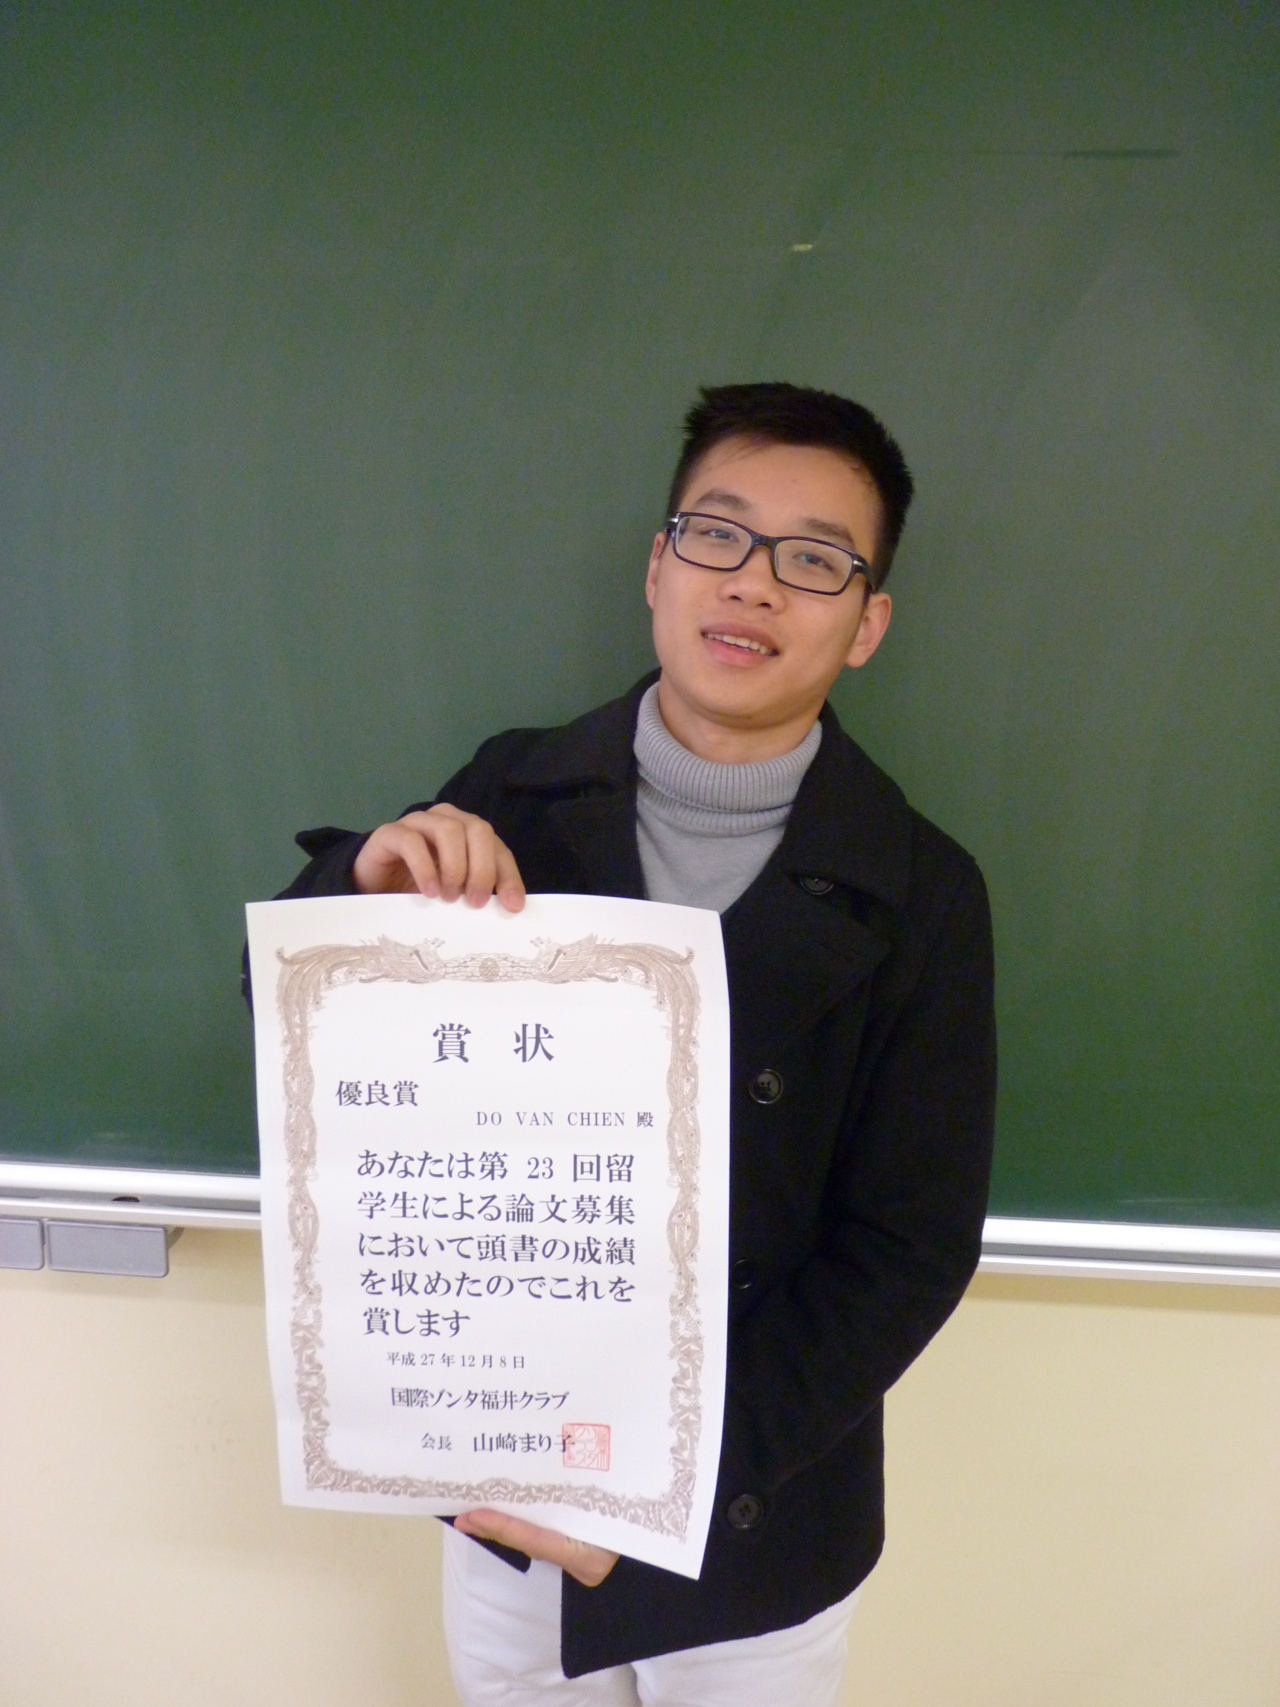 賞 状
優良賞
DO VAN CHIEN 殿
あなたは第 23 回留
学生による論文募集
において頭書の成績
を収めたのでこれを
賞します
平成 27 年 12 月 8 日
国際ゾンタ福井クラブ
会長 山崎まり子